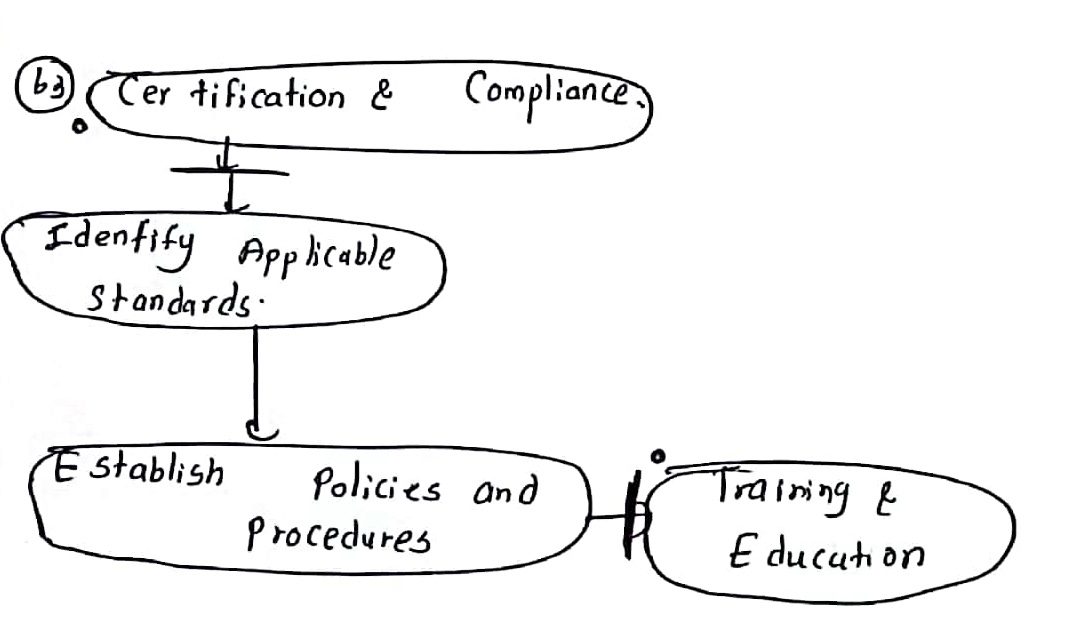 b3 Certification & Compliance.
Idenfify Applicable
Standards.
Establish Policies and
Procedures
Training &
Education